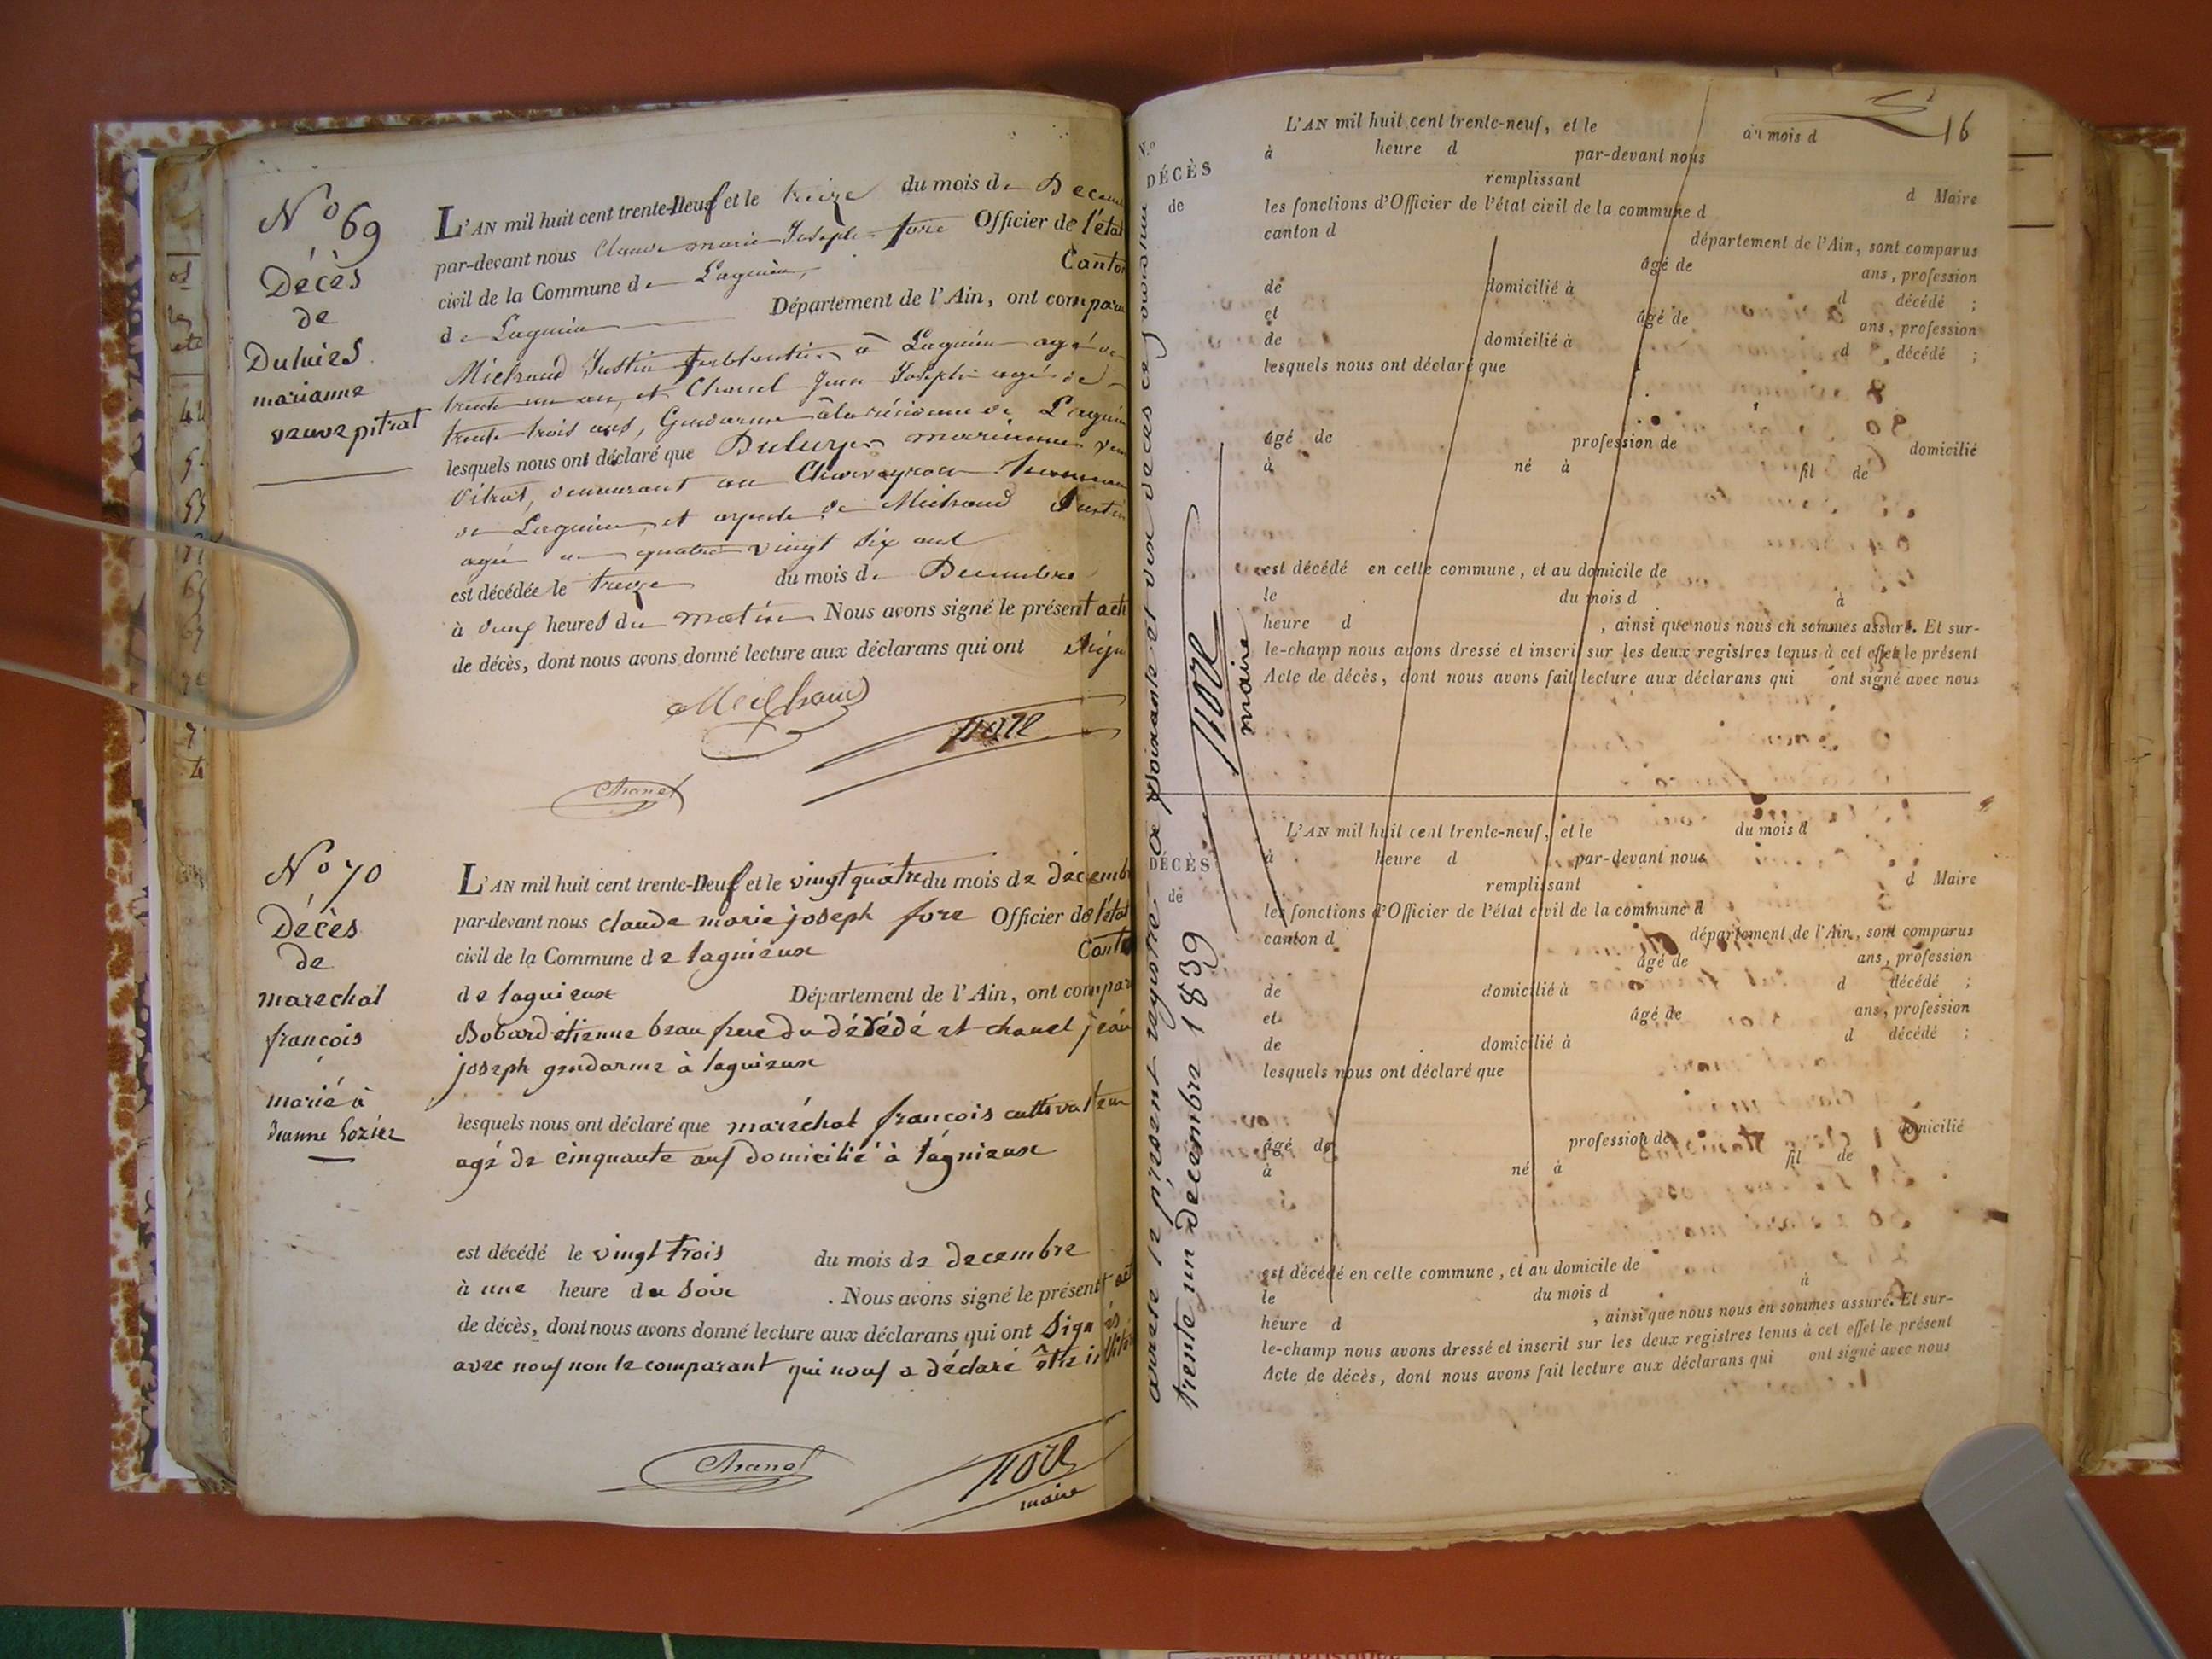 N° 69
Décès
de
marianne
veuve pitrat
L'AN mil huit cent trente-neuf et le treize du mois de Decem
par-devant nous Claude marie Joseph fore Officier de l'état
civil de la Commune de Lagnieu Canton
de Lagnieu Département de l'Ain, ont comparu
Michaud Justin ferblantier à Lagnieu agé de
trente un an, et Chanel Jean Joseph agé de
trente trois ans, Gendarme à la résidence de Lagnieu
lesquels nous ont déclaré que marianne veu
Pitrat, demeurant au
de Lagnieu, et de Michaud Justin
agée de quatre vingt six ans
est décédée le treize du mois de Decembre
à heures du matin Nous avons signé le présent acte
de décès, dont nous avons donné lecture aux déclarans qui ont signé
Michaud
fore
Chanel
N° 70
Décès
de
marechal
françois
marié à
Jeanne Lozier
L'AN mil huit cent trente-neuf et le vingt quatre du mois de décemb
par-devant nous claude marie joseph fore Officier de l'état
civil de la Commune de lagnieux Canto
de lagnieux Département de l'Ain, ont compar
Bobard étienne beau frere du décédé et chanel jean
joseph gendarme à lagnieux
lesquels nous ont déclaré que maréchal francois cultivateur
agé de cinquante ans domicilié à lagnieux
est décédé le vingt trois du mois de decembre
à une heure du soir . Nous avons signé le présent act
de décès, dont nous avons donné lecture aux déclarans qui ont signés
avec nous non le comparant qui nous a déclaré être
Chanel
fore
maire
16
DÉCÈS
de
L'AN mil huit cent trente-neuf, et le du mois d
à heure d par-devant nous
remplissant d Maire
les fonctions d'Officier de l'état civil de la commune d
canton d département de l'Ain, sont comparus
âgé de ans, profession
de domicilié à d décédé ;
et âgé de ans, profession
de domicilié à d décédé ;
lesquels nous ont déclaré que
âgé de profession de domicilié
à né à fil de
est décédé en cette commune, et au domicile de
le du mois d à
heure d , ainsi que nous nous en sommes assuré. Et sur-
le-champ nous avons dressé et inscrit sur les deux registres tenus à cet effet le présent
Acte de décès, dont nous avons fait lecture aux déclarans qui ont signé avec nous
DÉCÈS
de
L'AN mil huit cent trente-neuf, et le du mois d
à heure d par-devant nous
remplissant d Maire
les fonctions d'Officier de l'état civil de la commune d
canton d département de l'Ain, sont comparus
âgé de ans, profession
de domicilié à d décédé ;
et âgé de ans, profession
de domicilié à d décédé ;
lesquels nous ont déclaré que
âgé de profession de domicilié
à né à fil de
est décédé en cette commune, et au domicile de
le du mois d à
heure d , ainsi que nous nous en sommes assuré. Et sur-
le-champ nous avons dressé et inscrit sur les deux registres tenus à cet effet le présent
Acte de décès, dont nous avons fait lecture aux déclarans qui ont signé avec nous
arrete le présent registre a soixante et dix décès ce jourdhui
trente un decembre 1839
fore
maire